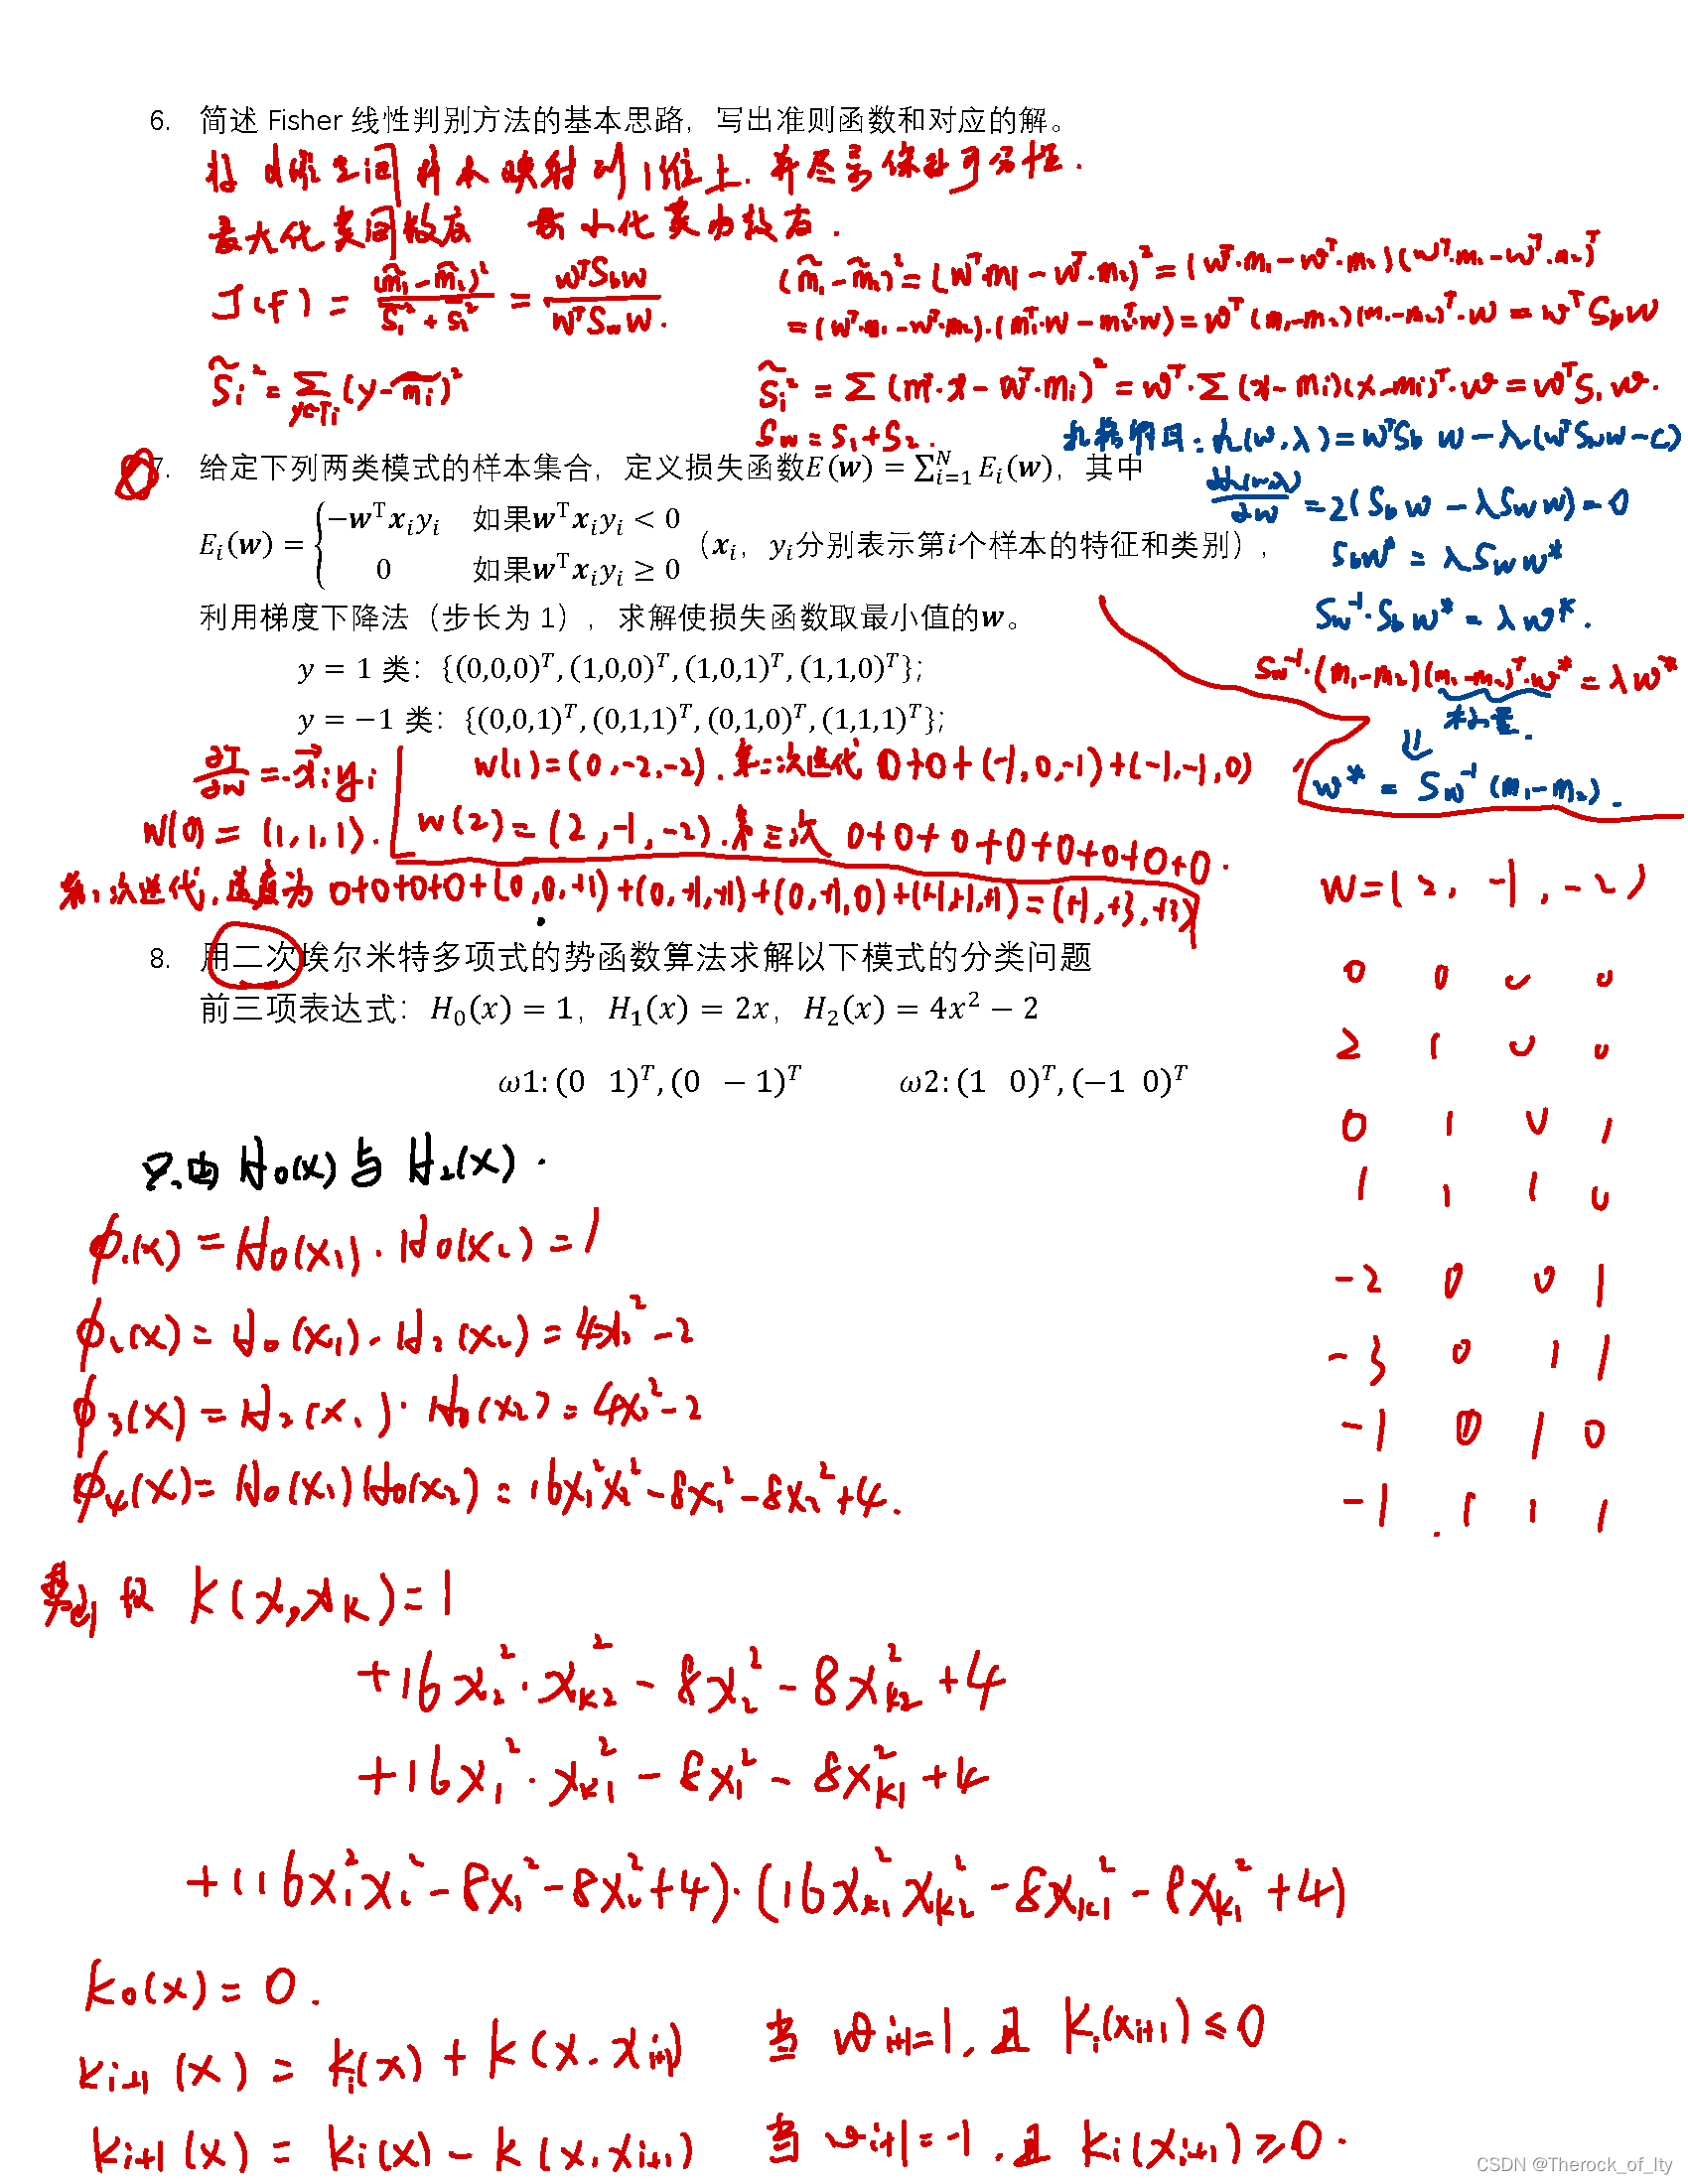 6. 简述 Fisher 线性判别方法的基本思路，写出准则函数和对应的解。
将 d维空间样本映射到1维上. 并尽量保持可分性.
最大化类间散度 最小化类内散度.
J(F) = (m̃₁-m̃₂)²/(S̃₁²+S̃₂²) = wᵀS_b w/wᵀS_w w.
(m̃₁-m̃₂)² = (wᵀ·m₁-wᵀ·m₂)² = (wᵀ·m₁-wᵀ·m₂)(wᵀ·m₁-wᵀ·m₂)ᵀ
= (wᵀ·m₁-wᵀ·m₂)·(m₁ᵀ·w-m₂ᵀ·w) = wᵀ(m₁-m₂)(m₁-m₂)ᵀ·w = wᵀS_b w
S̃ᵢ² = Σ_{y∈Tᵢ}(y-m̃ᵢ)²
S̃ᵢ² = Σ(wᵀ·x-wᵀ·mᵢ)² = wᵀ·Σ(x-mᵢ)(x-mᵢ)ᵀ·w = wᵀSᵢw.
S_w = S₁+S₂.
拉格朗日: L(w,λ) = wᵀS_b w-λ(wᵀS_w w-c)
∂L(w,λ)/∂w = 2(S_b w-λS_w w) = 0
S_b w* = λS_w w*
S_w⁻¹·S_b w* = λw*.
S_w⁻¹·(m₁-m₂)(m₁-m₂)ᵀ·w* = λw*
标量.
⇓
w* = S_w⁻¹(m₁-m₂).
7. 给定下列两类模式的样本集合，定义损失函数E(w) = Σᵢ₌₁ᴺ Eᵢ(w)，其中
Eᵢ(w) = { -wᵀxᵢyᵢ 如果wᵀxᵢyᵢ < 0
0 如果wᵀxᵢyᵢ ≥ 0 （xᵢ，yᵢ分别表示第i个样本的特征和类别），
利用梯度下降法（步长为 1），求解使损失函数取最小值的w。
y = 1 类：{(0,0,0)ᵀ, (1,0,0)ᵀ, (1,0,1)ᵀ, (1,1,0)ᵀ};
y = -1 类：{(0,0,1)ᵀ, (0,1,1)ᵀ, (0,1,0)ᵀ, (1,1,1)ᵀ};
∂J/∂w = -x⃗ᵢyᵢ
W(0) = (1,1,1).
W(1)=(0,-2,-2). 第二次迭代 0+0+(-1,0,-1)+(-1,-1,0)
W(2)=(2,-1,-2). 第三次 0+0+0+0+0+0+0+0.
第1次迭代, 梯度为 0+0+0+0+(0,0,+1)+(0,+1,+1)+(0,+1,0)+(+1,+1,+1)=(+1,+3,+3)
W=(2,-1,-2)
0 0 0 0
2 1 0 0
0 1 0 1
1 1 1 0
-2 0 0 1
-3 0 1 1
-1 0 1 0
-1 1 1 1
8. 用二次埃尔米特多项式的势函数算法求解以下模式的分类问题
前三项表达式：H₀(x) = 1，H₁(x) = 2x，H₂(x) = 4x² - 2
ω1: (0 1)ᵀ, (0 -1)ᵀ ω2: (1 0)ᵀ, (-1 0)ᵀ
只由 H₀(x) 与 H₂(x).
φ₁(x) = H₀(x₁)·H₀(x₂) = 1
φ₂(x) = H₀(x₁)·H₂(x₂) = 4x₂²-2
φ₃(x) = H₂(x₁)·H₀(x₂) = 4x₁²-2
φ₄(x) = H₀(x₁)H₀(x₂) = 16x₁²x₂²-8x₁²-8x₂²+4.
K(x,x_K) = 1
+16x₂²·x_{K2}²-8x₂²-8x_{K2}²+4
+16x₁²·x_{K1}²-8x₁²-8x_{K1}²+4
+(16x₁²x₂²-8x₁²-8x₂²+4)·(16x_{K1}²x_{K2}²-8x_{K1}²-8x_{K1}²+4)
K₀(x) = 0.
K_{i+1}(x) = K_i(x)+K(x,x_{i+1}) 当 w_{i+1}=1, 且 K_i(x_{i+1}) ≤ 0
K_{i+1}(x) = K_i(x)-K(x,x_{i+1}) 当 w_{i+1}=-1, 且 K_i(x_{i+1}) ≥ 0.
CSDN @Therock_of_lty